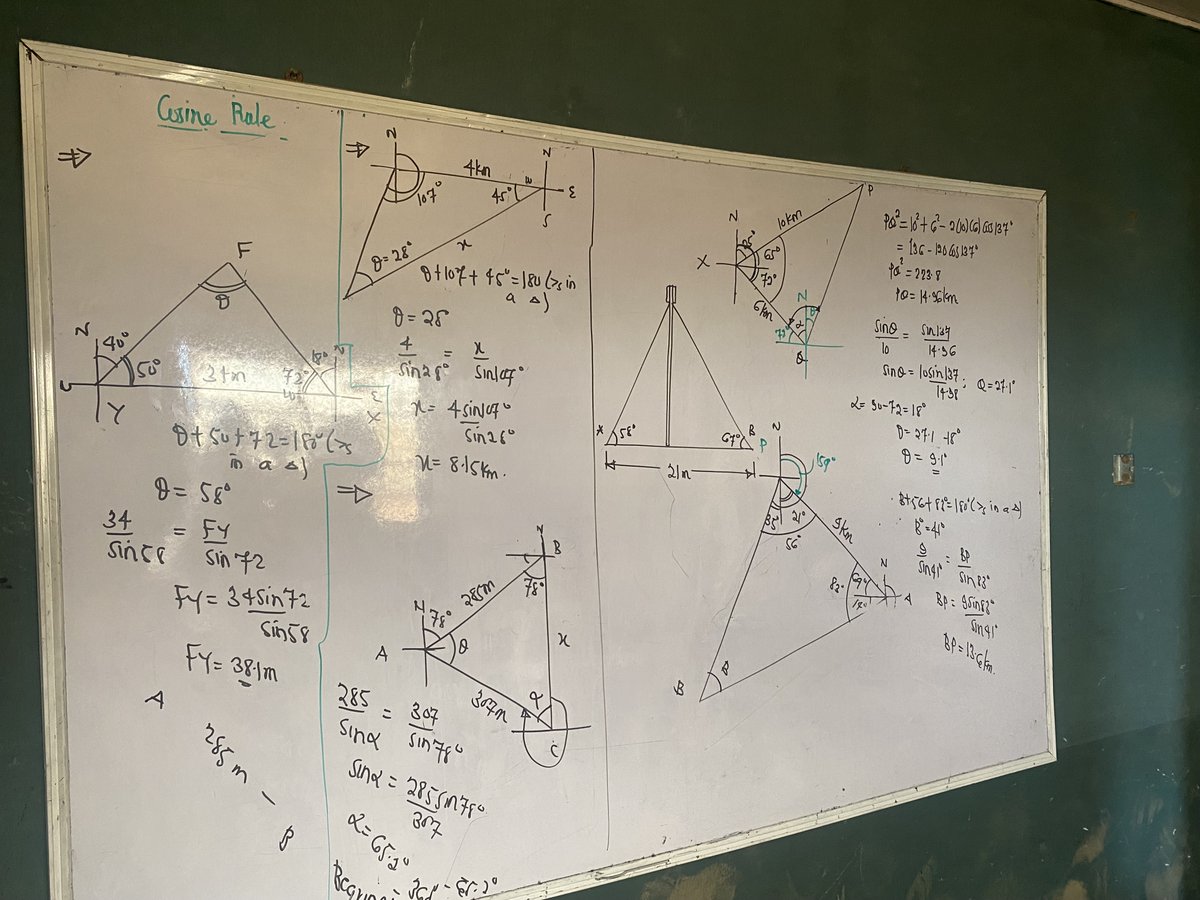 Cosine Rule
F
θ
N
40°
50°
34m
72°
18°
N
E
Y
X
θ+50+72=180°(∠s
in a Δ)
θ = 58°
34/sin58 = FY/sin72
FY = 34sin72/sin58
FY = 38.1m
A
285m
B
N
107°
4km
45°
N
E
S
θ=28°
x
θ+107+45°=180(∠s in
a Δ)
θ = 28°
4/sin28° = x/sin107°
x = 4sin107°/sin28°
x = 8.15km.
N
B
78°
285m
N
78°
A
θ
x
307m
α
C
285/sinα = 307/sin78°
sinα = 285sin78°/307
α = 65.2°
P
N
10km
65°
X
72°
6km
N
θ
α
72°
Q
PQ² = 10²+6²-2(10)(6)cos137°
= 136-120cos137°
PQ² = 223.8
PQ = 14.96km
sinθ/10 = sin137/14.96
sinθ = 10sin137/14.96; Q=27.1°
α = 90-72=18°
θ = 27.1-18°
θ = 9.1°
A
58°
67°
B
21m
N
P
159°
35°
21°
56°
9km
N
83°
69°
14°
A
B
θ
θ+56+83°=180°(∠s in a Δ)
θ=41°
9/sin41° = BP/sin83°
BP = 9sin83°/sin41°
BP=13.6km.